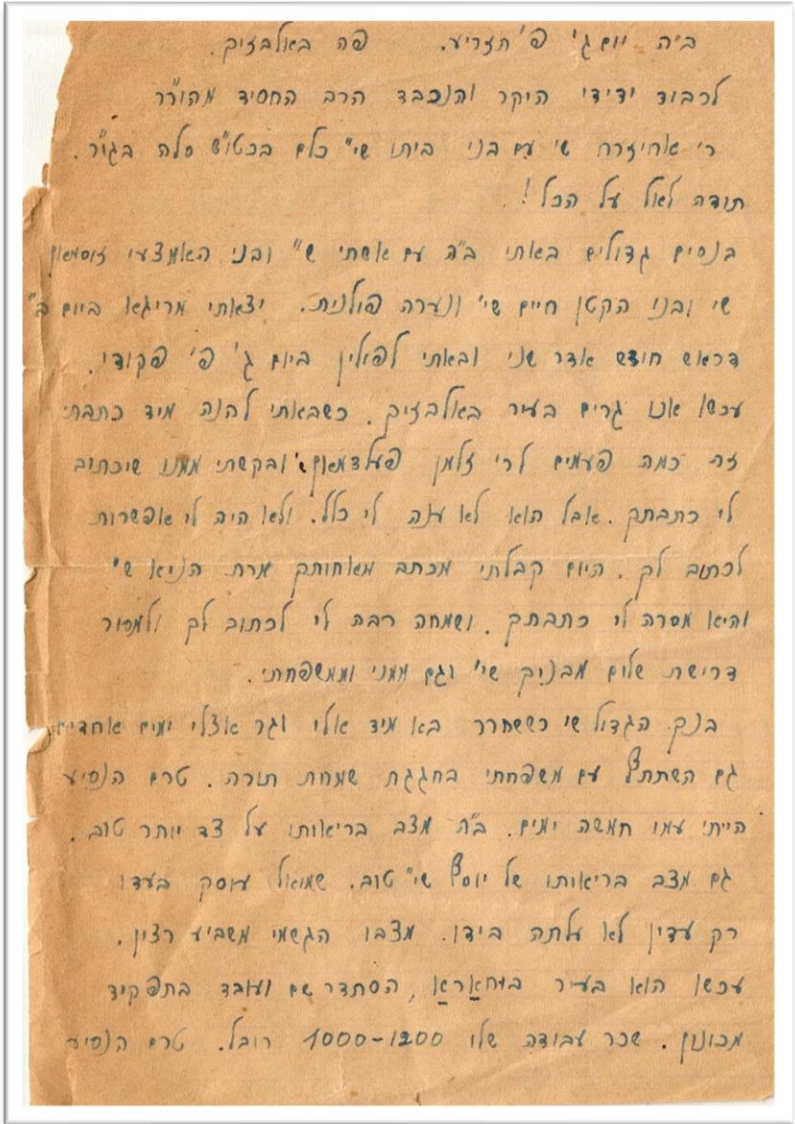 ב״ה יום ג' פ' תזריע. פה באלבזיק.
לכבוד ידידי היקר והנכבד הרב החסיד מהור״ר
ר' אחיעזר שי' עם בני ביתו שי״ כלם בכט״ש סלה בגו״ר.
תודה לאל על הכל!
בנסים גדולים באתי ב״ה עם אשתי ש״ ובני האמצעי זוסמאן
שי' ובני הקטן חיים שי' ונערה פולנית. יצאתי מריגא ביום ב״
דראש חודש אדר שני ובאתי לפולין ביום ג' פ' פקודי.
עכשו אנו גרים בעיר באלבזיק. כשבאתי להנה מיד כתבתי
זה כמה פעמים לר' זלמן פעלדמאן ובקשתי ממנו שיכתוב
לי כתבתך. אבל הוא לא ענה לי כלל. ולא היה לי אפשרות
לכתוב לך. היום קבלתי מכתב מאחותך מרת הניא ש'
והיא מסרה לי כתבתך. ושמחה רבה לי לכתוב לך ולמסור
דרישת שלום מבניך שי' וגם ממני וממשפחתי.
בנך הגדול שי' כששחרר בא מיד אלי וגר אצלי ימים אחדים
גם השתתף עם משפחתי בחגגת שמחת תורה. טרם הנסיע
הייתי עמו חמשה ימים. ב״ה מצב בריאותו על צד יותר טוב.
גם מצב בריאותו של יוסף שי״ טוב. שמואל עוסק בעדו
רק עדין לא עלתה בידו. מצבו הגשמי משביע רצון.
עכשו הוא בעיר בוחארא, הסתדר שם ועובד בתפקיד
מכונון. שכר עבודה שלו 1000-1200 רובל. טרם הנסיע